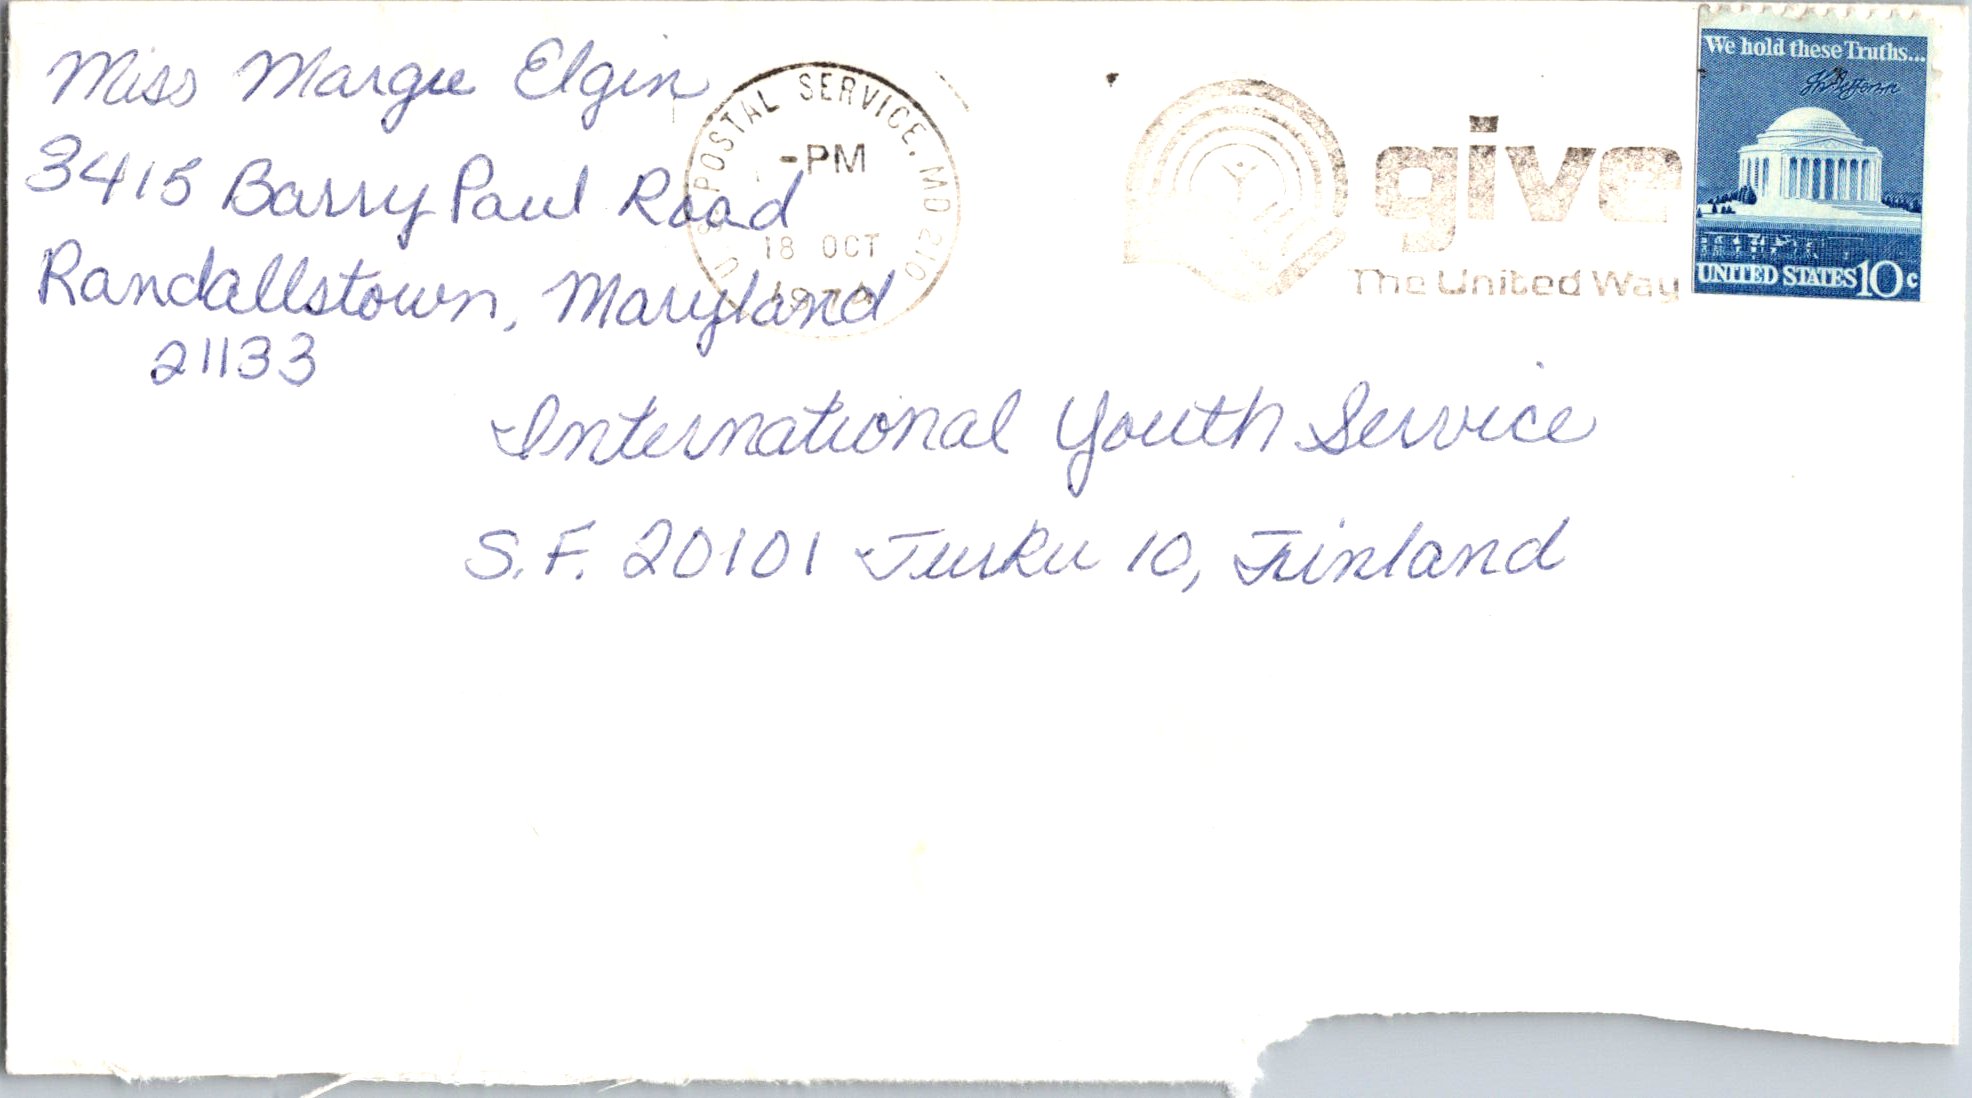 Miss Margie Elgin
3415 Barry Paul Road
Randallstown, Maryland
21133
U.S. POSTAL SERVICE, MD 210
-PM
18 OCT
1974
give
The United Way
We hold these Truths...
Th Jefferson
UNITED STATES 10c
International Youth Service
S.F. 20101 Turku 10, Finland